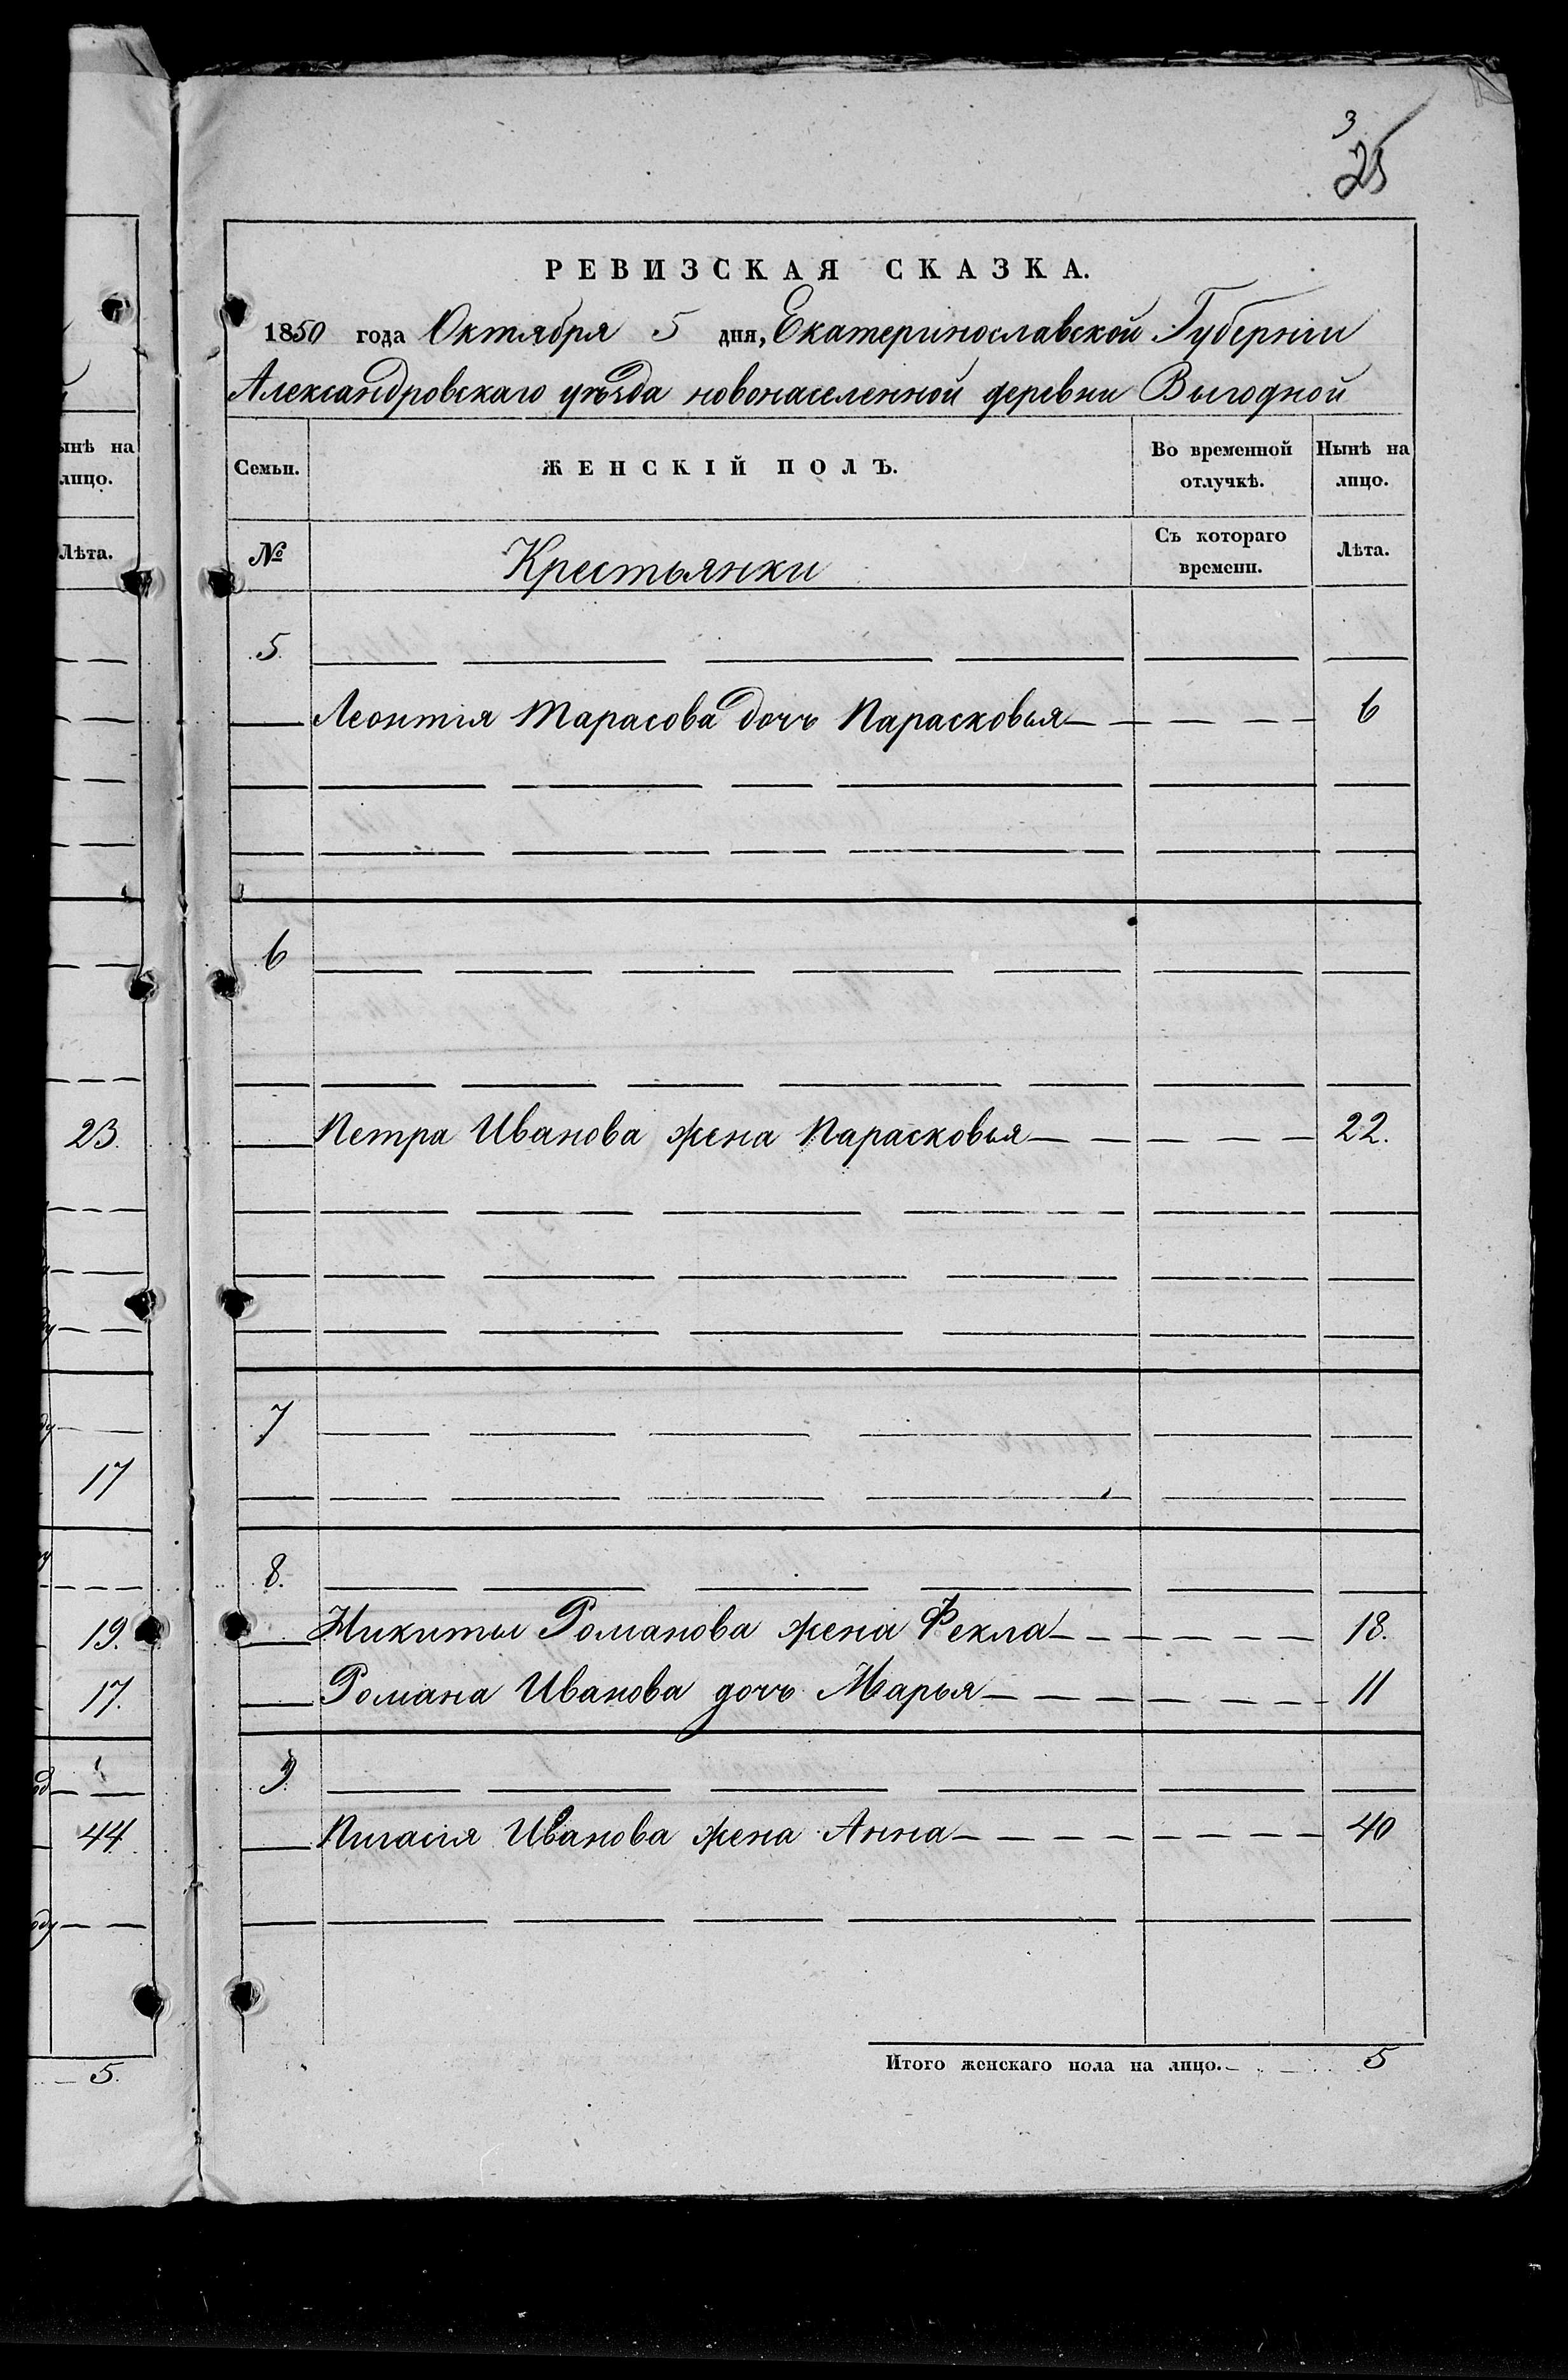 3
25
РЕВИЗСКАЯ СКАЗКА.
1850 года Октября 5 дня, Екатеринославской Губерніи
Александровскаго уѣзда новонаселенной деревни Выгодной
Семьи.
ЖЕНСКІЙ ПОЛЪ.
Во временной отлучкѣ.
Нынѣ на лицо.
№
Крестьянки
Съ котораго времени.
Лѣта.
5.
Леонтія Тарасова дочь Парасковья 6
6
Петра Иванова жена Парасковья 22.
7
8.
Никиты Романова жена Фекла 18.
Романа Иванова дочь Марья 11
9.
Пигасія Иванова жена Анна 40
Итого женскаго пола на лицо. 5
лицо.
Лѣта.
23.
17
19.
17.
44.
5.